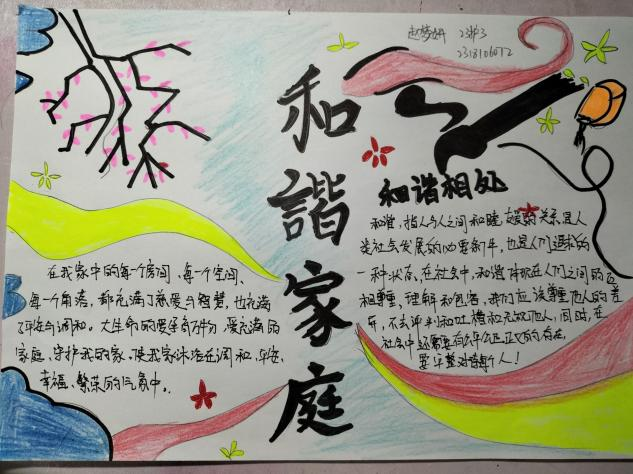 赵梦妍 23护3
2318106072
和谐家庭
和谐相处
和谐,指人与人之间和睦、友爱的关系,是人
类社会发展的必要条件,也是人们追求的
一种状态,在社会中,和谐体现在人们之间的互
相尊重,理解和包容,我们应该尊重他人的差
异,不去评判和吐槽和无故他人,同时,在
社会中还需要有公平公正正义的存在,
要平等对待每个人!
在我家中的每一个房间、每一个空间、
每一个角落,都充满了慈爱与智慧,也充满
了平安与调和。大生命的
充满的
家庭,守护我的家,使我家沐浴在调和、平安、
幸福、繁荣的气氛中。